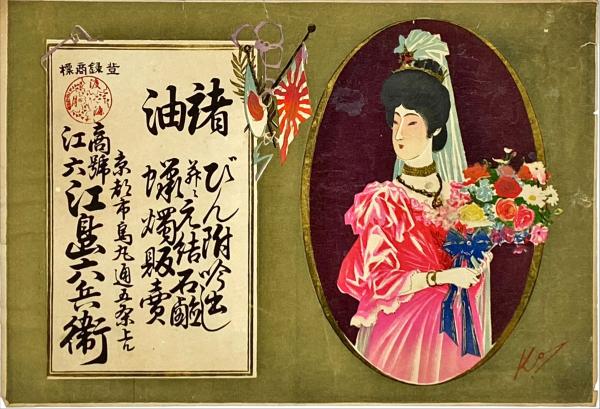 諸油
びん附吟出し
并ニ元結石鹼
蠟燭販賣
京都市烏丸通五条上ル
登録商標
商號
江六
江島六兵衛